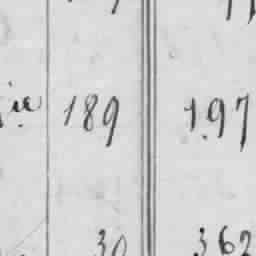 189 197
30 362